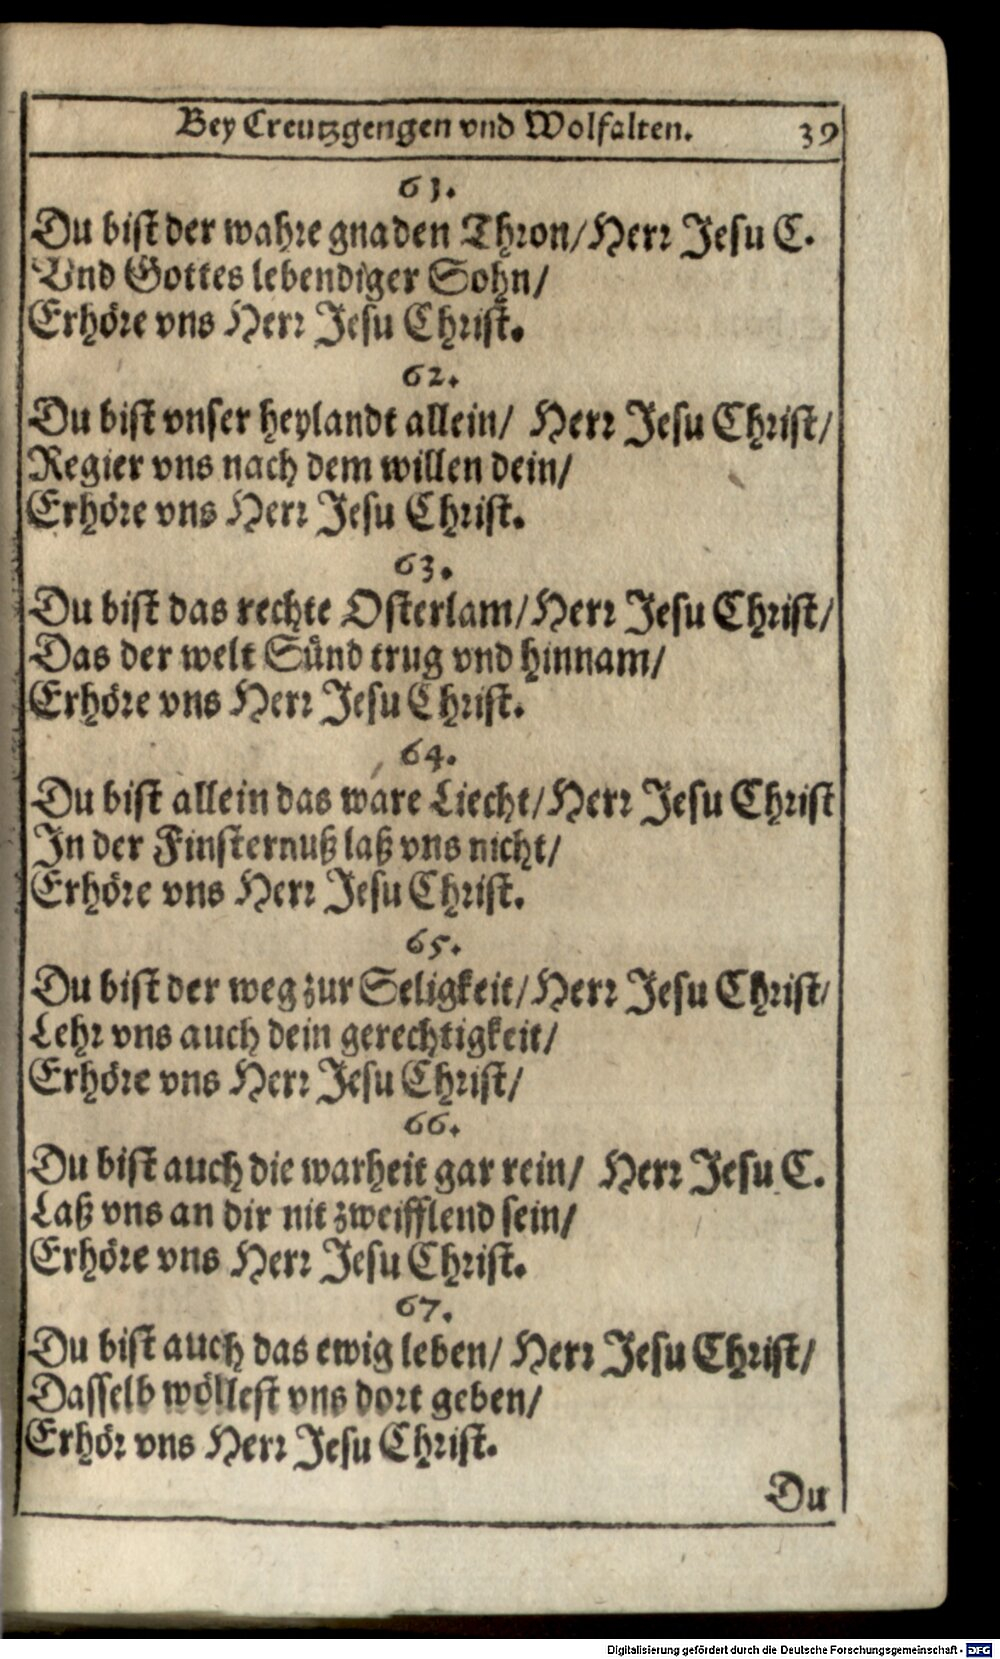 Bey Creutzgengen vnd Wolfalten. 39
61.
Du bist der wahre gnaden Thron/Herr Jesu C.
Vnd Gottes lebendiger Sohn/
Erhöre vns Herr Jesu Christ.
62.
Du bist vnser heylandt allein/ Herr Jesu Christ/
Regier vns nach dem willen dein/
Erhöre vns Herr Jesu Christ.
63.
Du bist das rechte Osterlam/Herr Jesu Christ/
Das der welt Sünd trug vnd hinnam/
Erhöre vns Herr Jesu Christ.
64.
Du bist allein das ware Liecht/Herr Jesu Christ
In der Finsternuß laß vns nicht/
Erhöre vns Herr Jesu Christ.
65.
Du bist der weg zur Seligkeit/Herr Jesu Christ/
Lehr vns auch dein gerechtigkeit/
Erhöre vns Herr Jesu Christ/
66.
Du bist auch die warheit gar rein/ Herr Jesu C.
Laß vns an dir nit zweifflend sein/
Erhöre vns Herr Jesu Christ.
67.
Du bist auch das ewig leben/ Herr Jesu Christ/
Dasselb wöllest vns dort geben/
Erhör vns Herr Jesu Christ.
Du
Digitalisierung gefördert durch die Deutsche Forschungsgemeinschaft - DFG